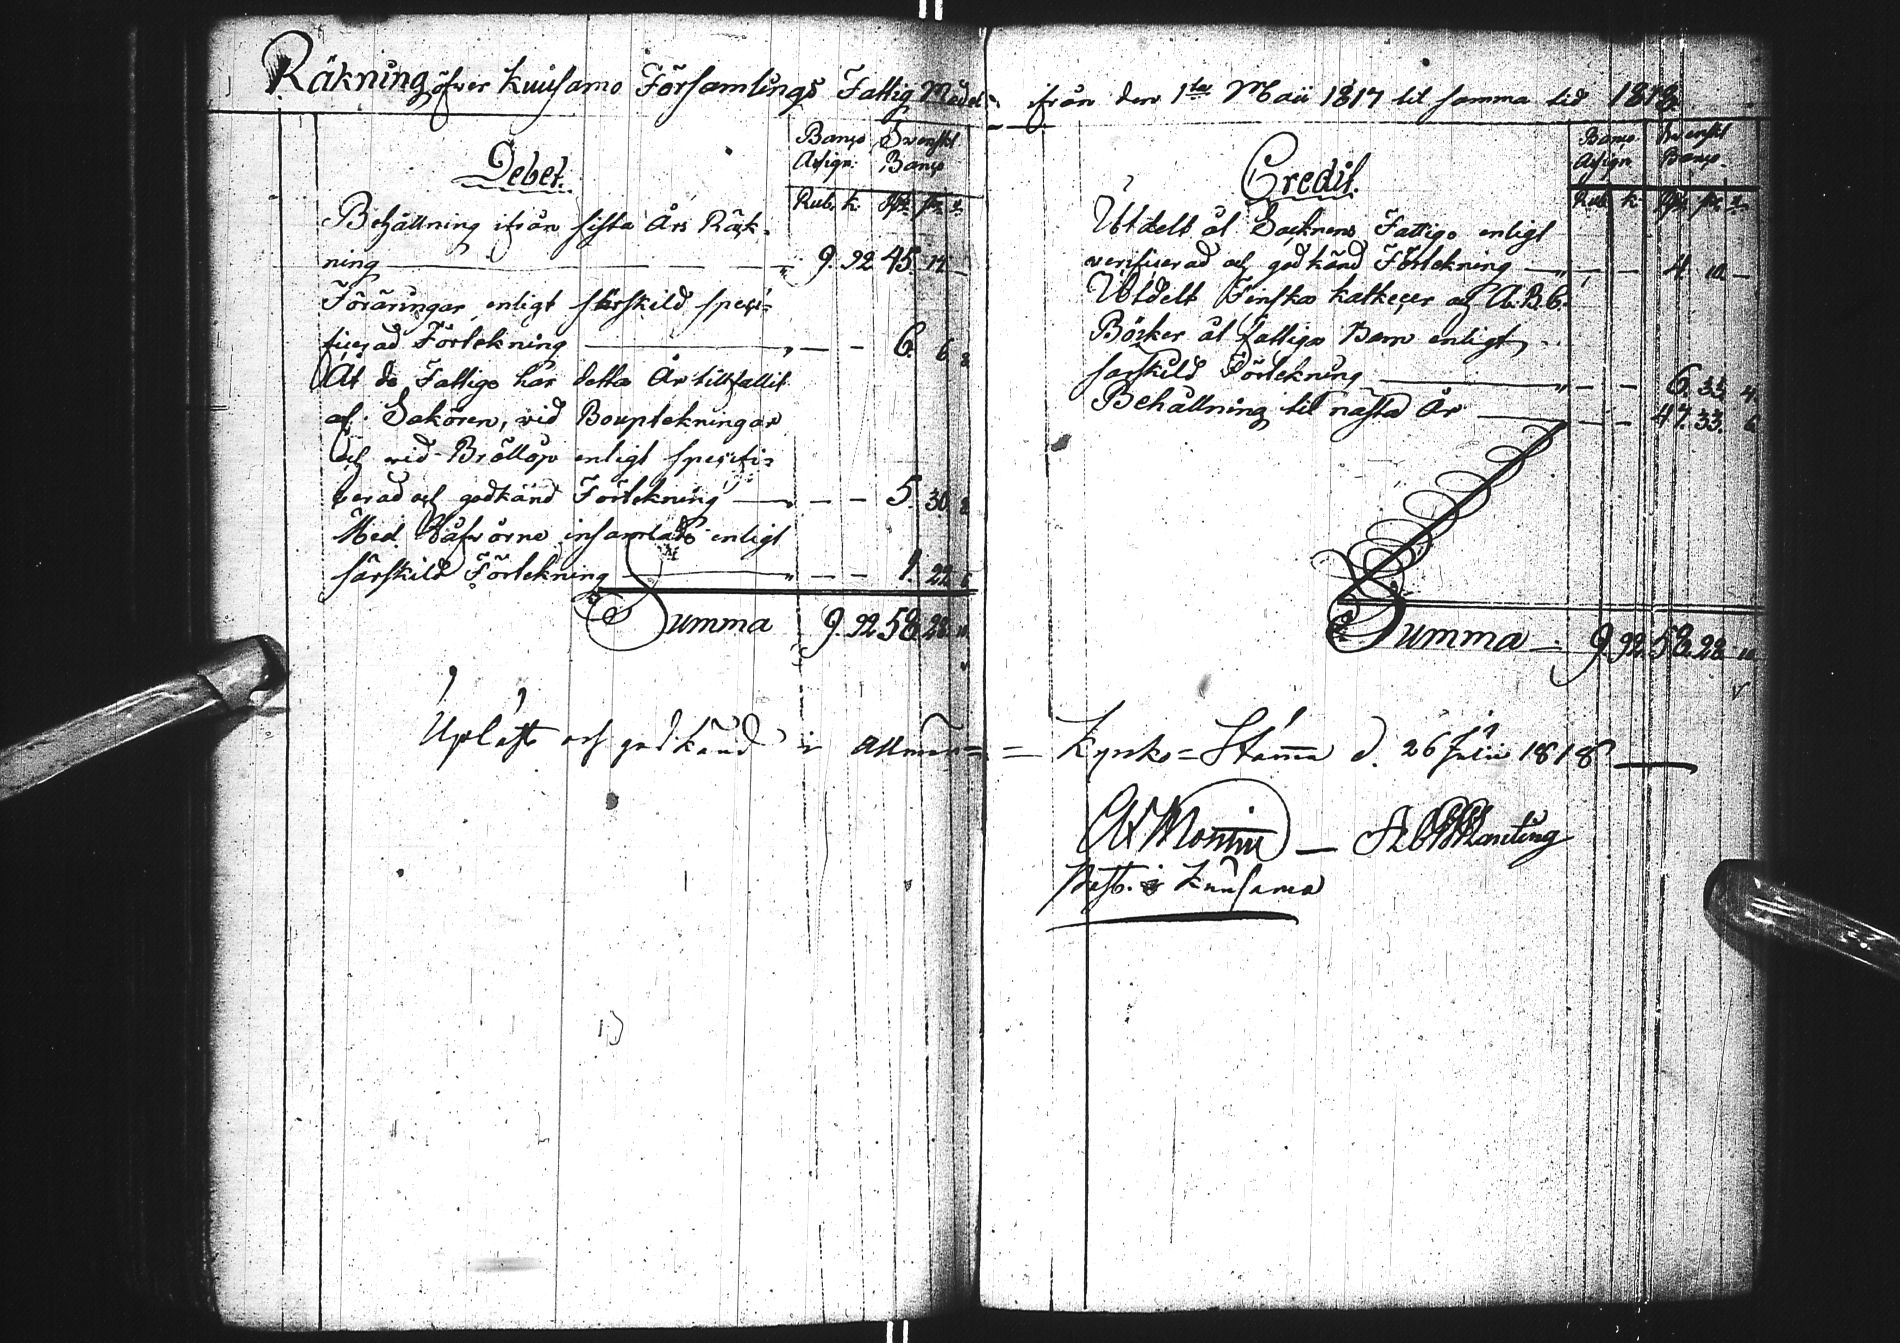 Räkning öfwer Kuusamo Församlings Fattig Medel ifrån den 1sta Maii 1817 til samma tid 1818
Debet.
Banco Assign. Swenskt Banco
Rub. k. Rd. sk. r.
Behållning ifrån sista Års Räk-
ning 9. 92 45. 14 —
Föräringar enligt särskild speci-
ficerad Förtekning — — 6. 6 8
Åt de Fattige har detta År tillfallit
af Sakören, vid Bouptekningar
och vid Bröllop enligt specifi-
cerad och godkänd Förtekning — — 5. 30. 8
Med Håfvorne insamlade enligt
särskild Förtekning — — 1. 22. 6
Summa 9. 92 58. 28. 10.
Credit.
Banco Assign Swenskt Banco.
Rub. k. Rd. sk. r.
Utdelt åt Socknens Fattige enligt
verificerad och godkänd Förtekning — — 4. 10 —
Utdelt Finska katkeser och A.B.C.
Böcker åt fattiga Barn enligt
särskild Förtekning — — 6. 33 4.
Behållning til nästa År — — 47. 33. 6
Summa 9. 92. 58. 28 10
Upläst och godkänd i allmän Kyrko-Stämma d. 26 Julii 1818
Montin
Past. i Kuusamo